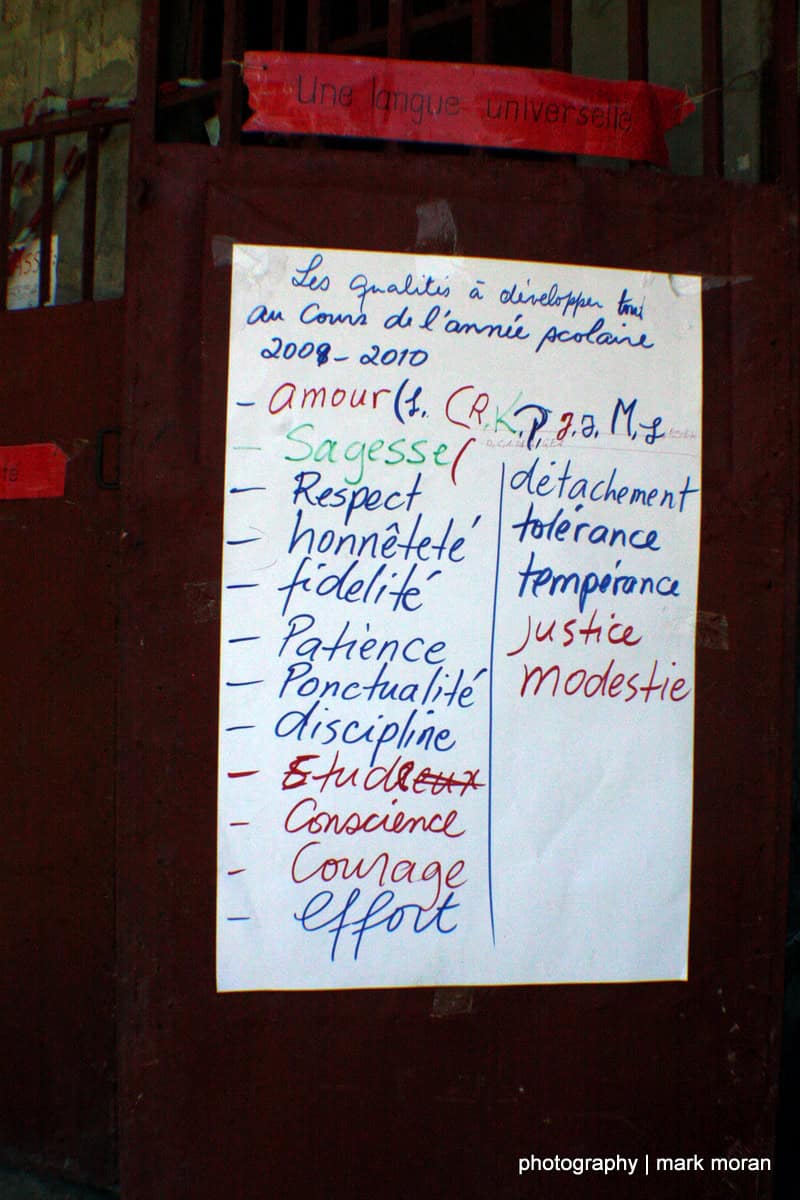 Une langue universelle
Les qualités à développer tout
au Cours de l'année scolaire
2009-2010
- amour (
- Sagesse (
- Respect
- honnêteté
- fidelité
- Patience
- Ponctualité
- discipline
- Conscience
- Courage
- effort
détachement
tolérance
tempérance
justice
modestie
té
photography | mark moran